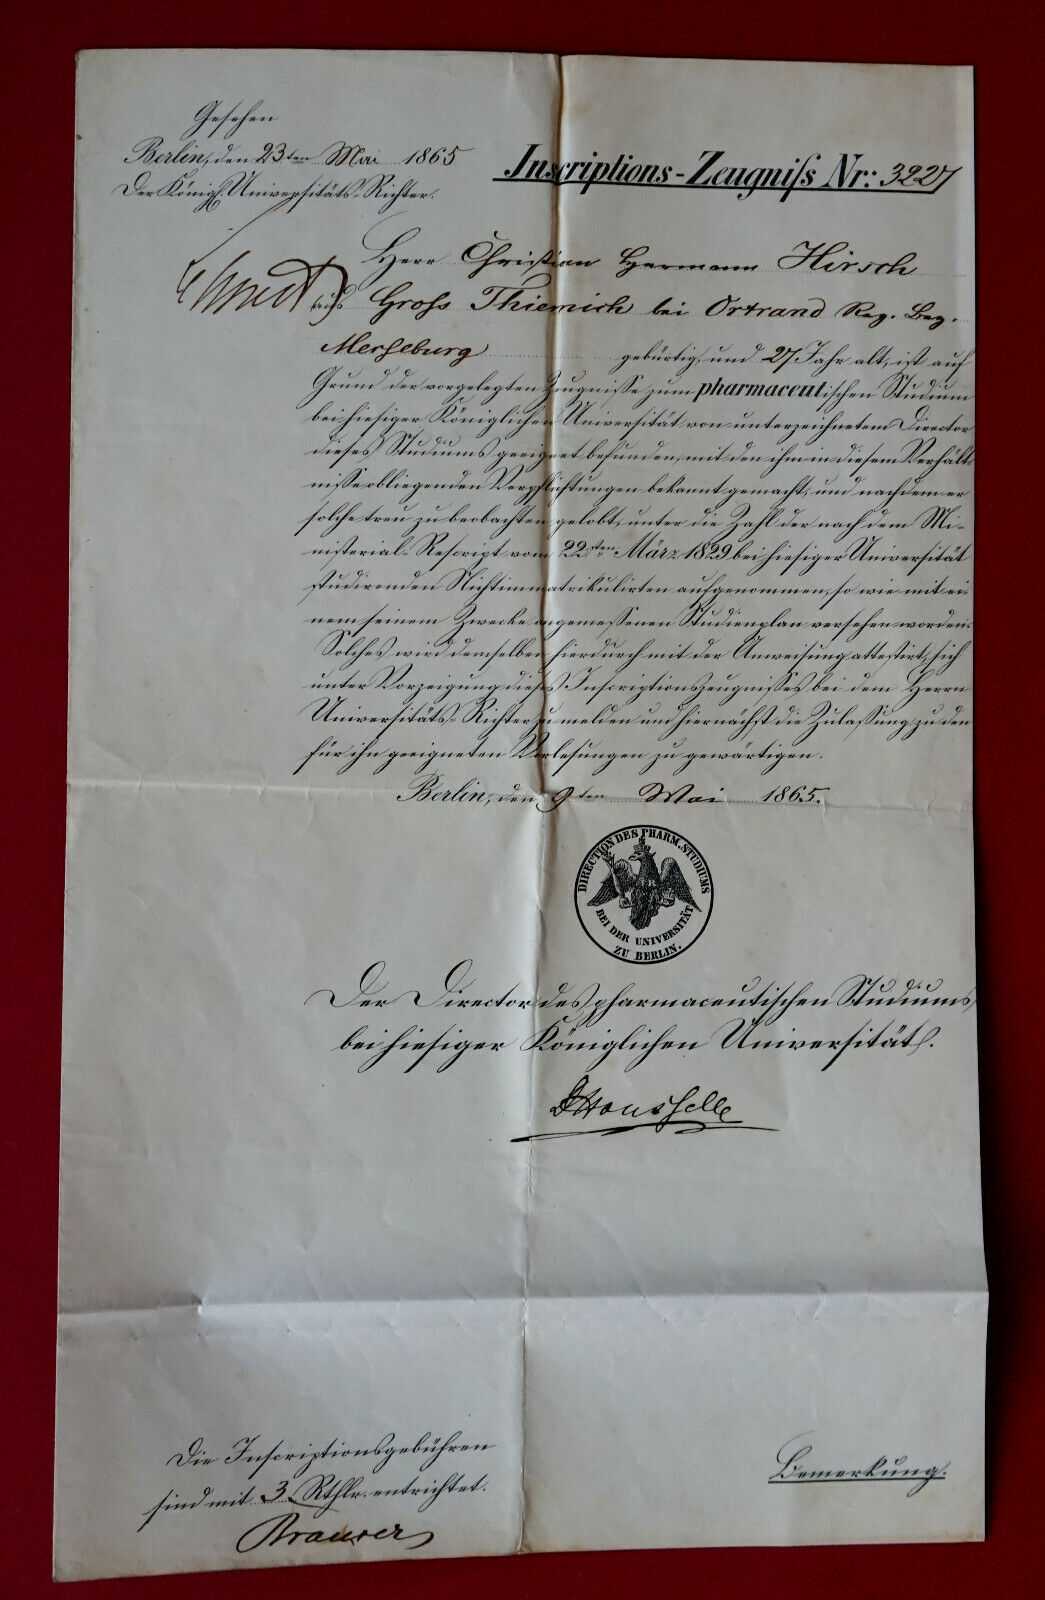 Gesehen
Berlin, den 23ten Mai 1865
Der Königl. Universitäts-Richter.
Inscriptions-Zeugniſs Nr: 3227
Herr Christian Hermann Hirsch
aus Groſs Thiemich bei Ortrand Reg. Bez.
Merſeburg gebürtig, und 27 Jahr alt, ist auf
Grund der vorgelegten Zeugnisse zum pharmaceutischen Studium
bei hiesiger Königlichen Universität von unterzeichnetem Director
dieses Studiums geeignet befunden, mit den ihm in diesem Verhält-
nisse obliegenden Verpflichtungen bekannt gemacht, und nachdem er
solche treu zu beobachten gelobt, unter die Zahl der nach dem Mi-
nisterial-Rescript vom 22sten März 1829 bei hiesiger Universität
studirenden Nichtimmatrikulirten aufgenommen, so wie mit ei-
nem seinem Zwecke angemessenen Studienplan versehen worden.
Solches wird demselben hierdurch mit der Anweisung attestirt, sich
unter Vorzeigung dieses Inscriptionszeugnisses bei dem Herrn
Universitäts-Richter zu melden und hiernächst die Zulassung zu den
für ihn geeigneten Vorlesungen zu gewärtigen.
Berlin, den 9ten Mai 1865.
DIRECTION DES PHARM. STUDIUMS
BEI DER UNIVERSITÄT
ZU BERLIN.
Der Director des pharmaceutischen Studiums
bei hiesiger Königlichen Universität.
Die Inscriptionsgebühren
sind mit 3 Rthlr. entrichtet.
Bemerkung.